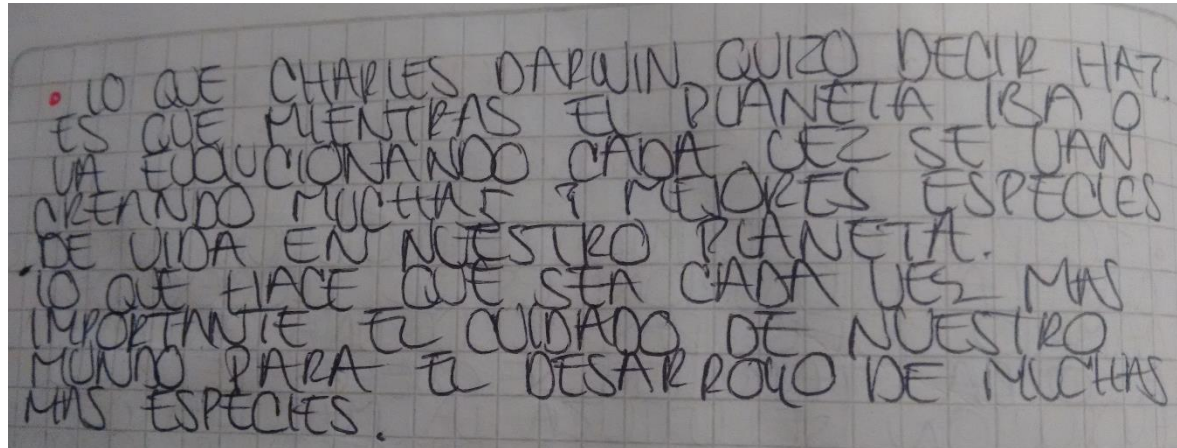 • LO QUE CHARLES DARWIN QUIZO DECIR HAY.
ES QUE MIENTRAS EL PLANETA IBA O
VA EVOLUCIONANDO CADA VEZ SE VAN
CREANDO MUCHAS Y MEJORES ESPECIES
DE VIDA EN NUESTRO PLANETA.
• LO QUE HACE QUE SEA CADA VEZ MAS
IMPORTANTE EL CUIDADO DE NUESTRO
MUNDO PARA EL DESARROYO DE MUCHAS
MAS ESPECIES.